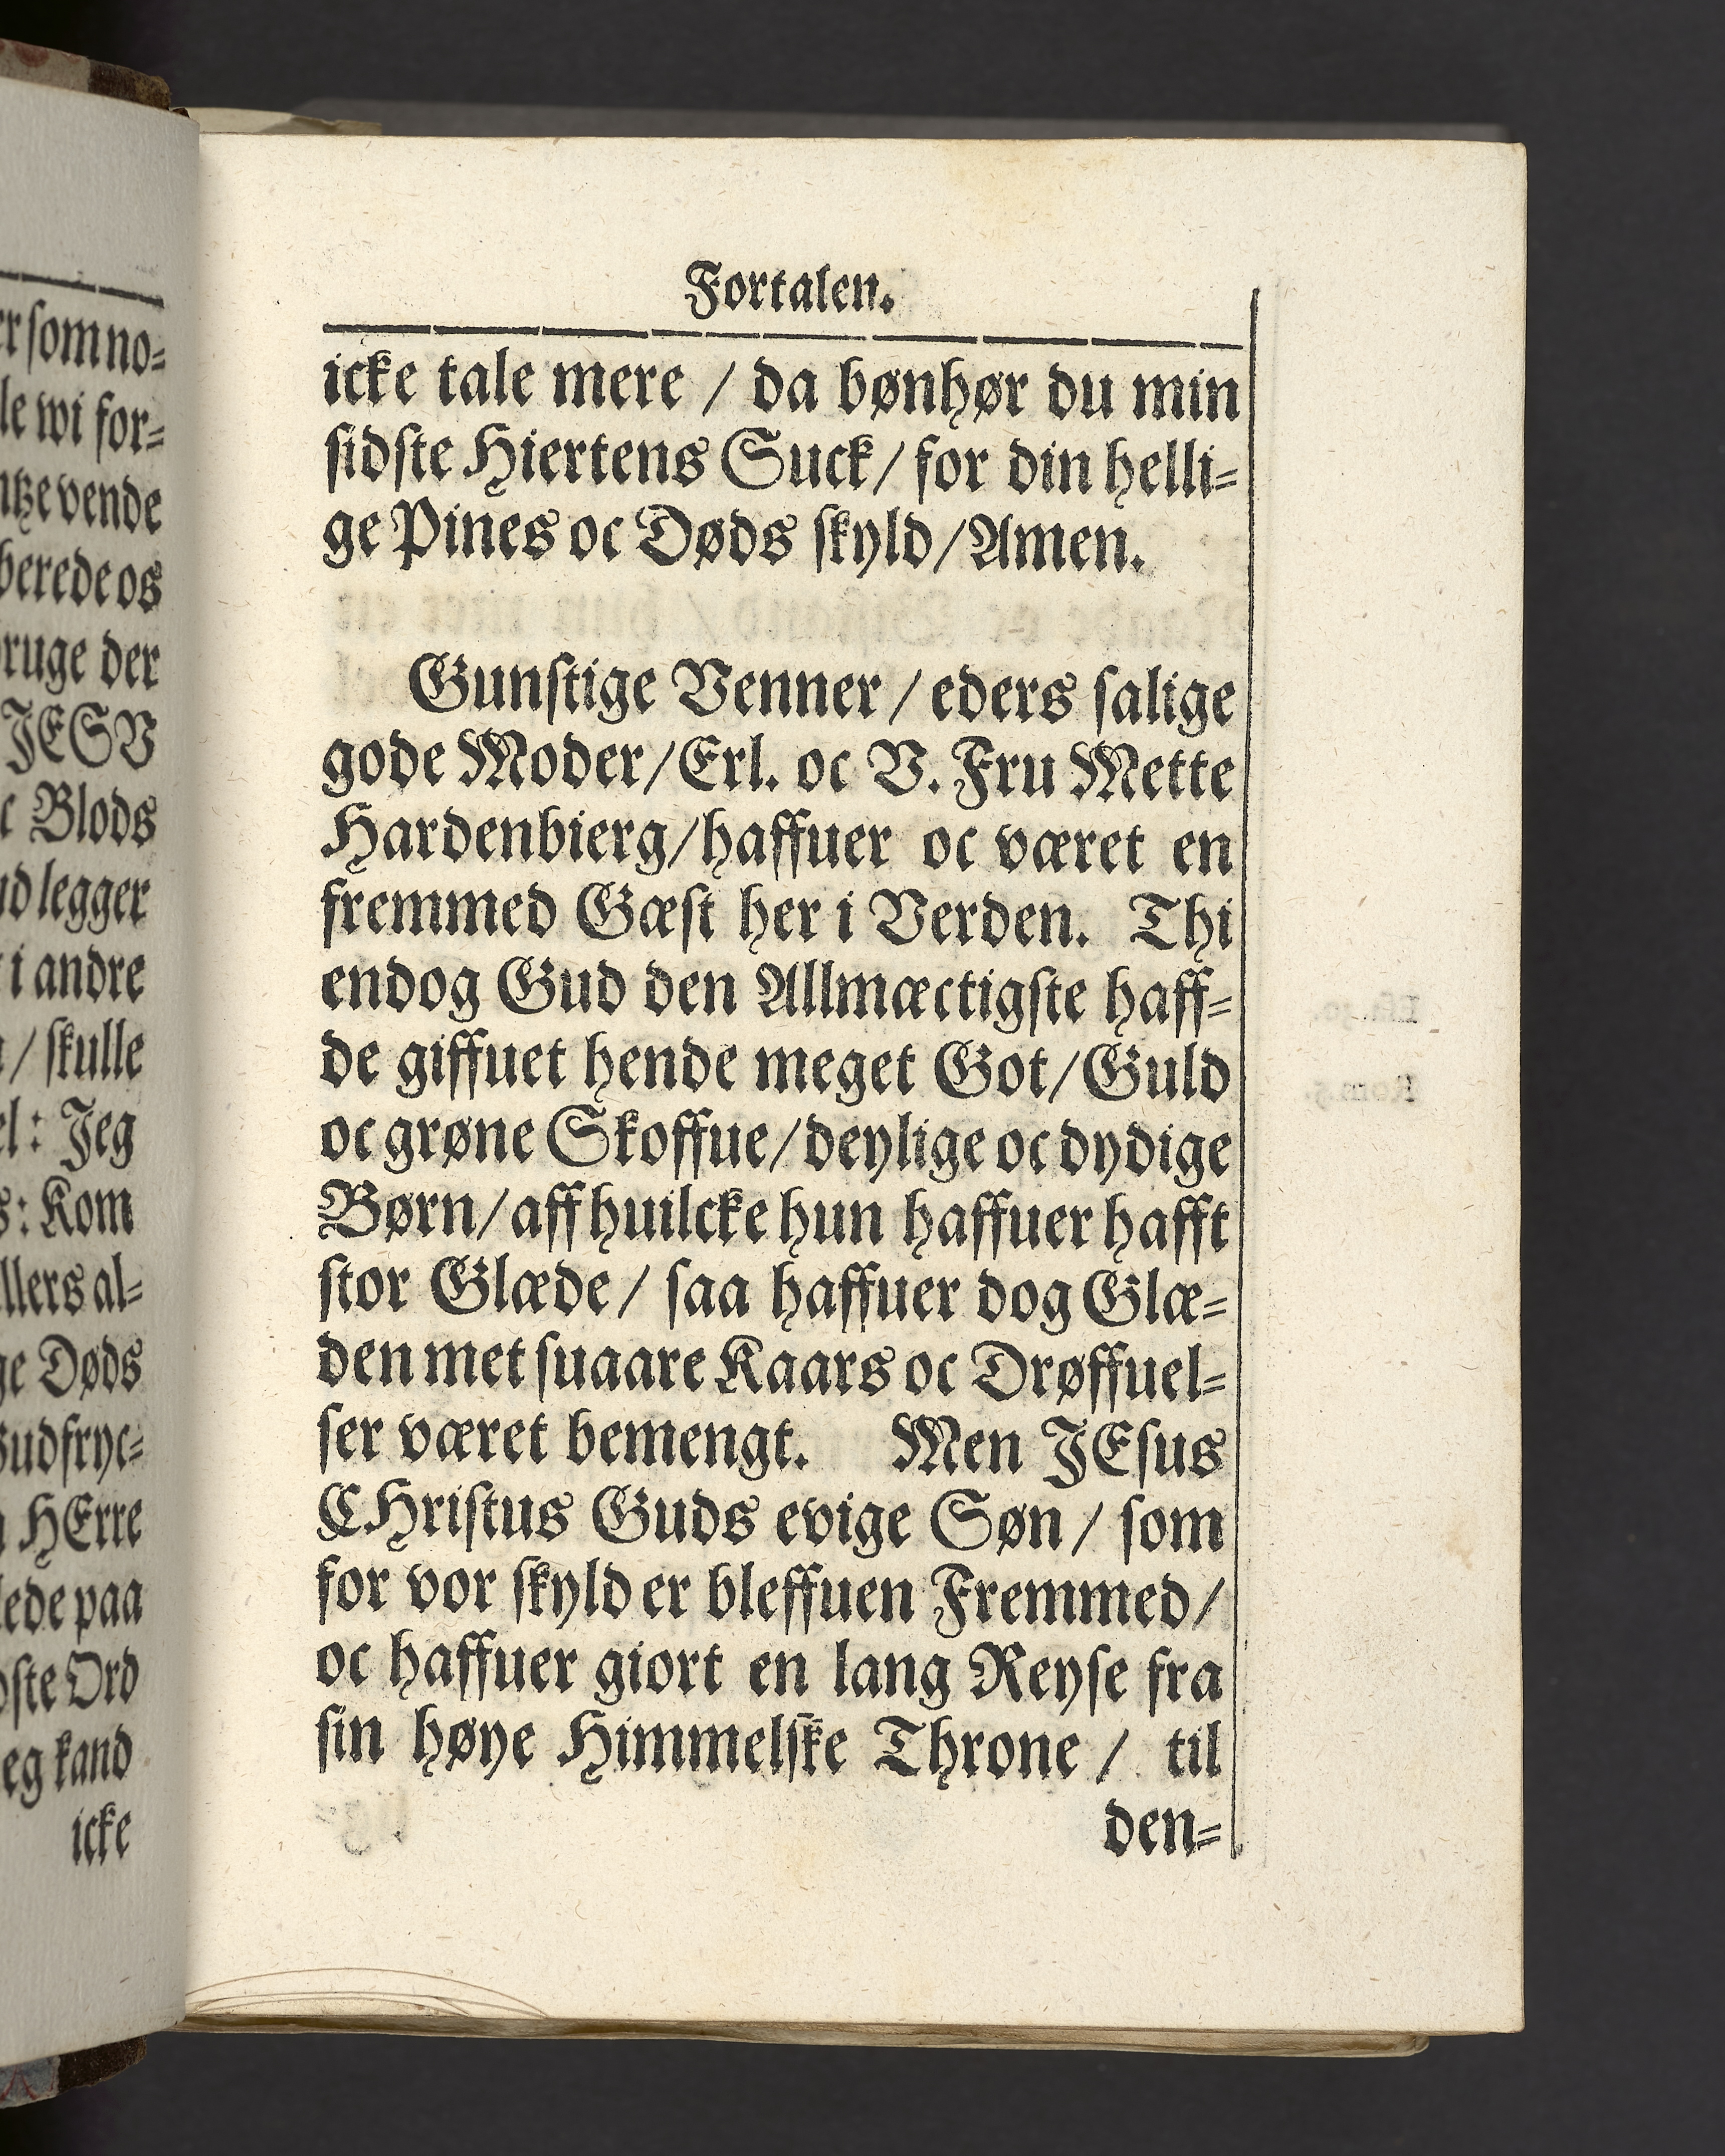 Fortalen.
icke tale mere / da bønhør du min
sidste Hiertens Suck / for din helli-
ge Pines oc Døds skyld / Amen.
Gunstige Venner / eders salige
gode Moder / Erl. oc V. Fru Mette
Hardenbierg / haffuer oc været en
fremmed Gæst her i Verden. Thi
endog Gud den Allmæctigste haff-
de giffuet hende meget Got / Guld
oc grøne Skoffue / deylige oc dydige
Børn / aff huilcke hun haffuer hafft
stor Glæde / saa haffuer dog Glæ-
den met suaare Kaars oc Drøffuel-
ser været bemengt. Men JEsus
CHristus Guds evige Søn / som
for vor skyld er bleffuen Fremmed /
oc haffuer giort en lang Reyse fra
sin høye Himmelske Throne / til
den-
som no-
wi for-
vende
berede os
der
JESV
Blods
legger
i andre
/ skulle
Jeg
Kom
al-
Døds
HErre
paa
Ord
kand
icke